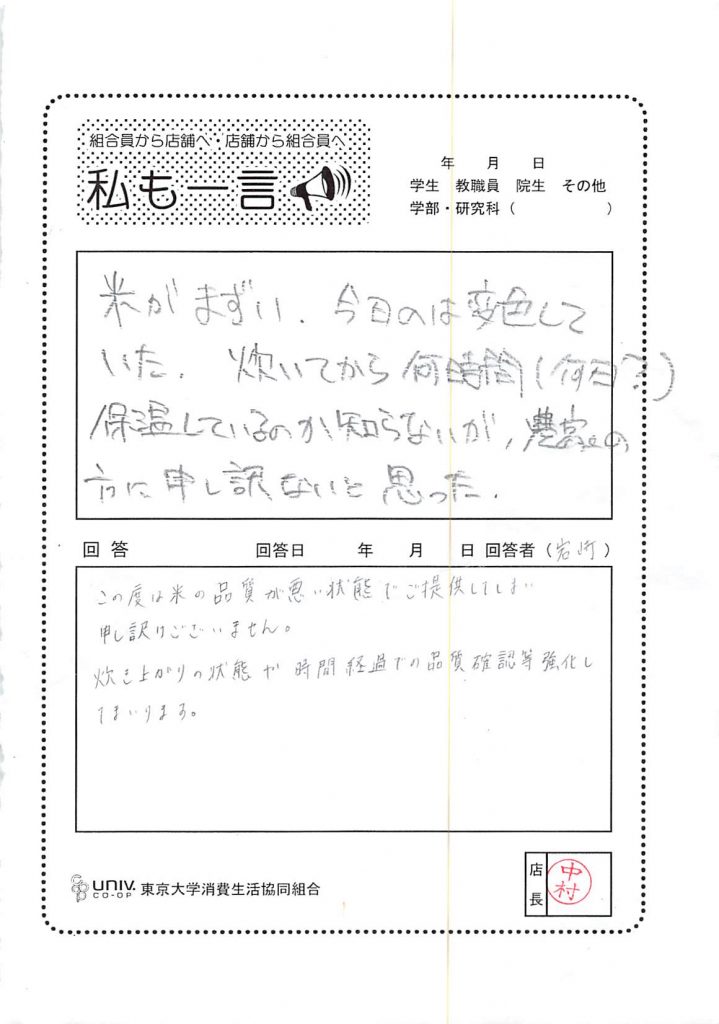 組合員から店舗へ・店舗から組合員へ
私も一言
年 月 日
学生 教職員 院生 その他
学部・研究科 ( )
米がまずい. 今日のは変色して
いた. 炊いてから何時間(何日?)
保温しているのか知らないが, 農家の
方に申し訳ないと思った.
回答 回答日 年 月 日 回答者 ( )
この度は米の品質が悪い状態でご提供してしまい
申し訳けございません。
炊き上がりの状態や時間経過での品質確認等強化し
てまいります。
UNIV. CO-OP 東京大学消費生活協同組合
店長
中村